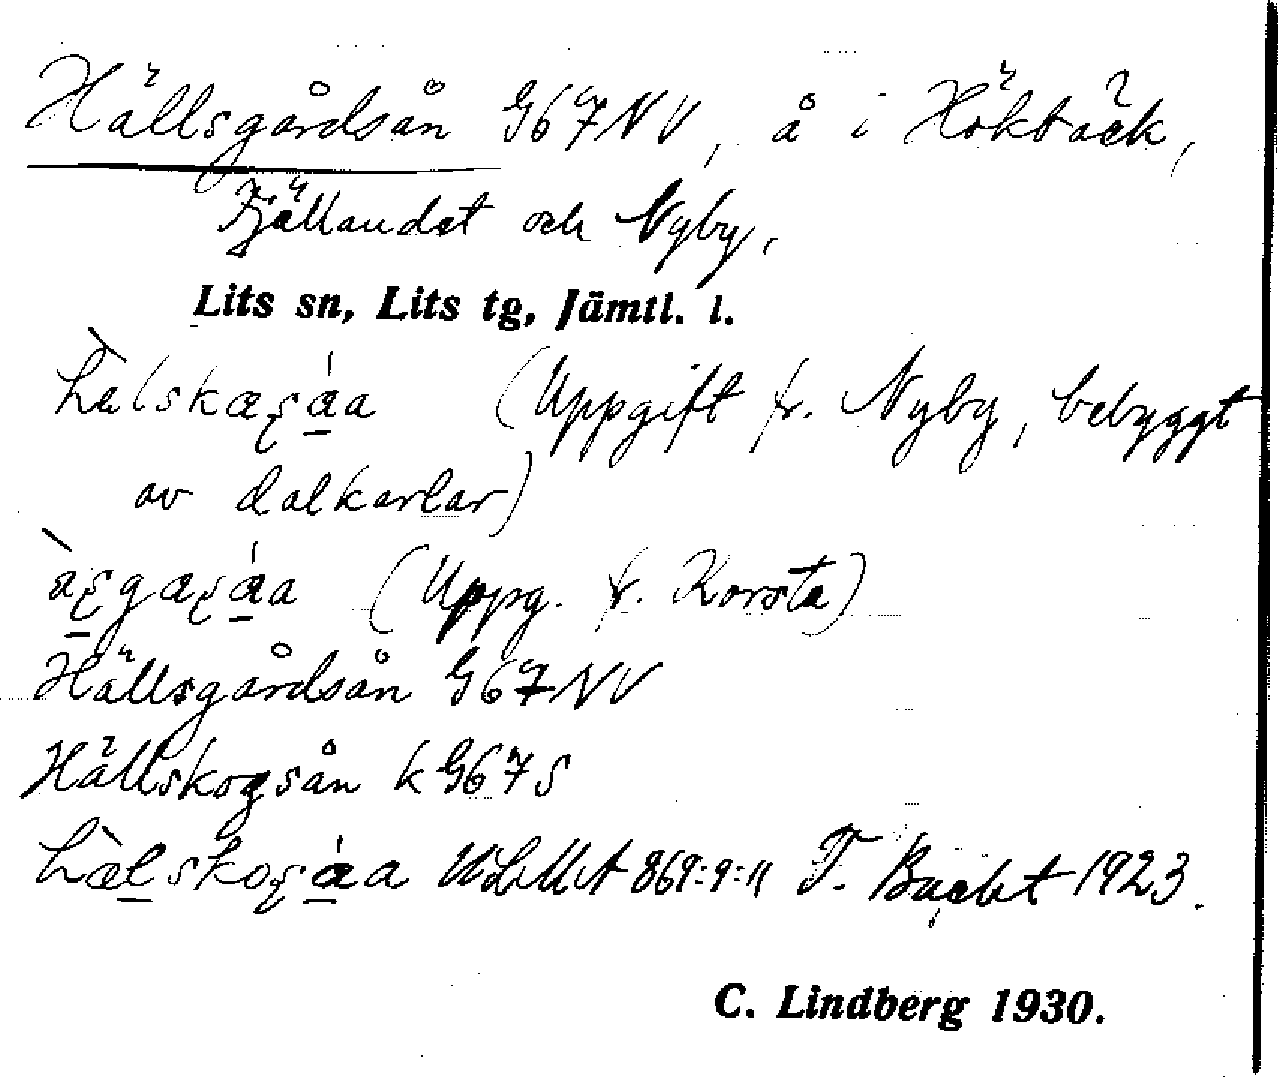 Hällsgårdsån G67NV, å i Högbäck,
Fjällandet och Nyby,
Lits sn, Lits tg, Jämtl. l.
(Uppgift fr. Nyby, bebyggt
av dalkarlar)
(Uppg. fr. Korsta)
Hällsgårdsån G67NV
Hällskogsån k G67S
ULMA 869:9:11 F. Bucht 1923.
C. Lindberg 1930.